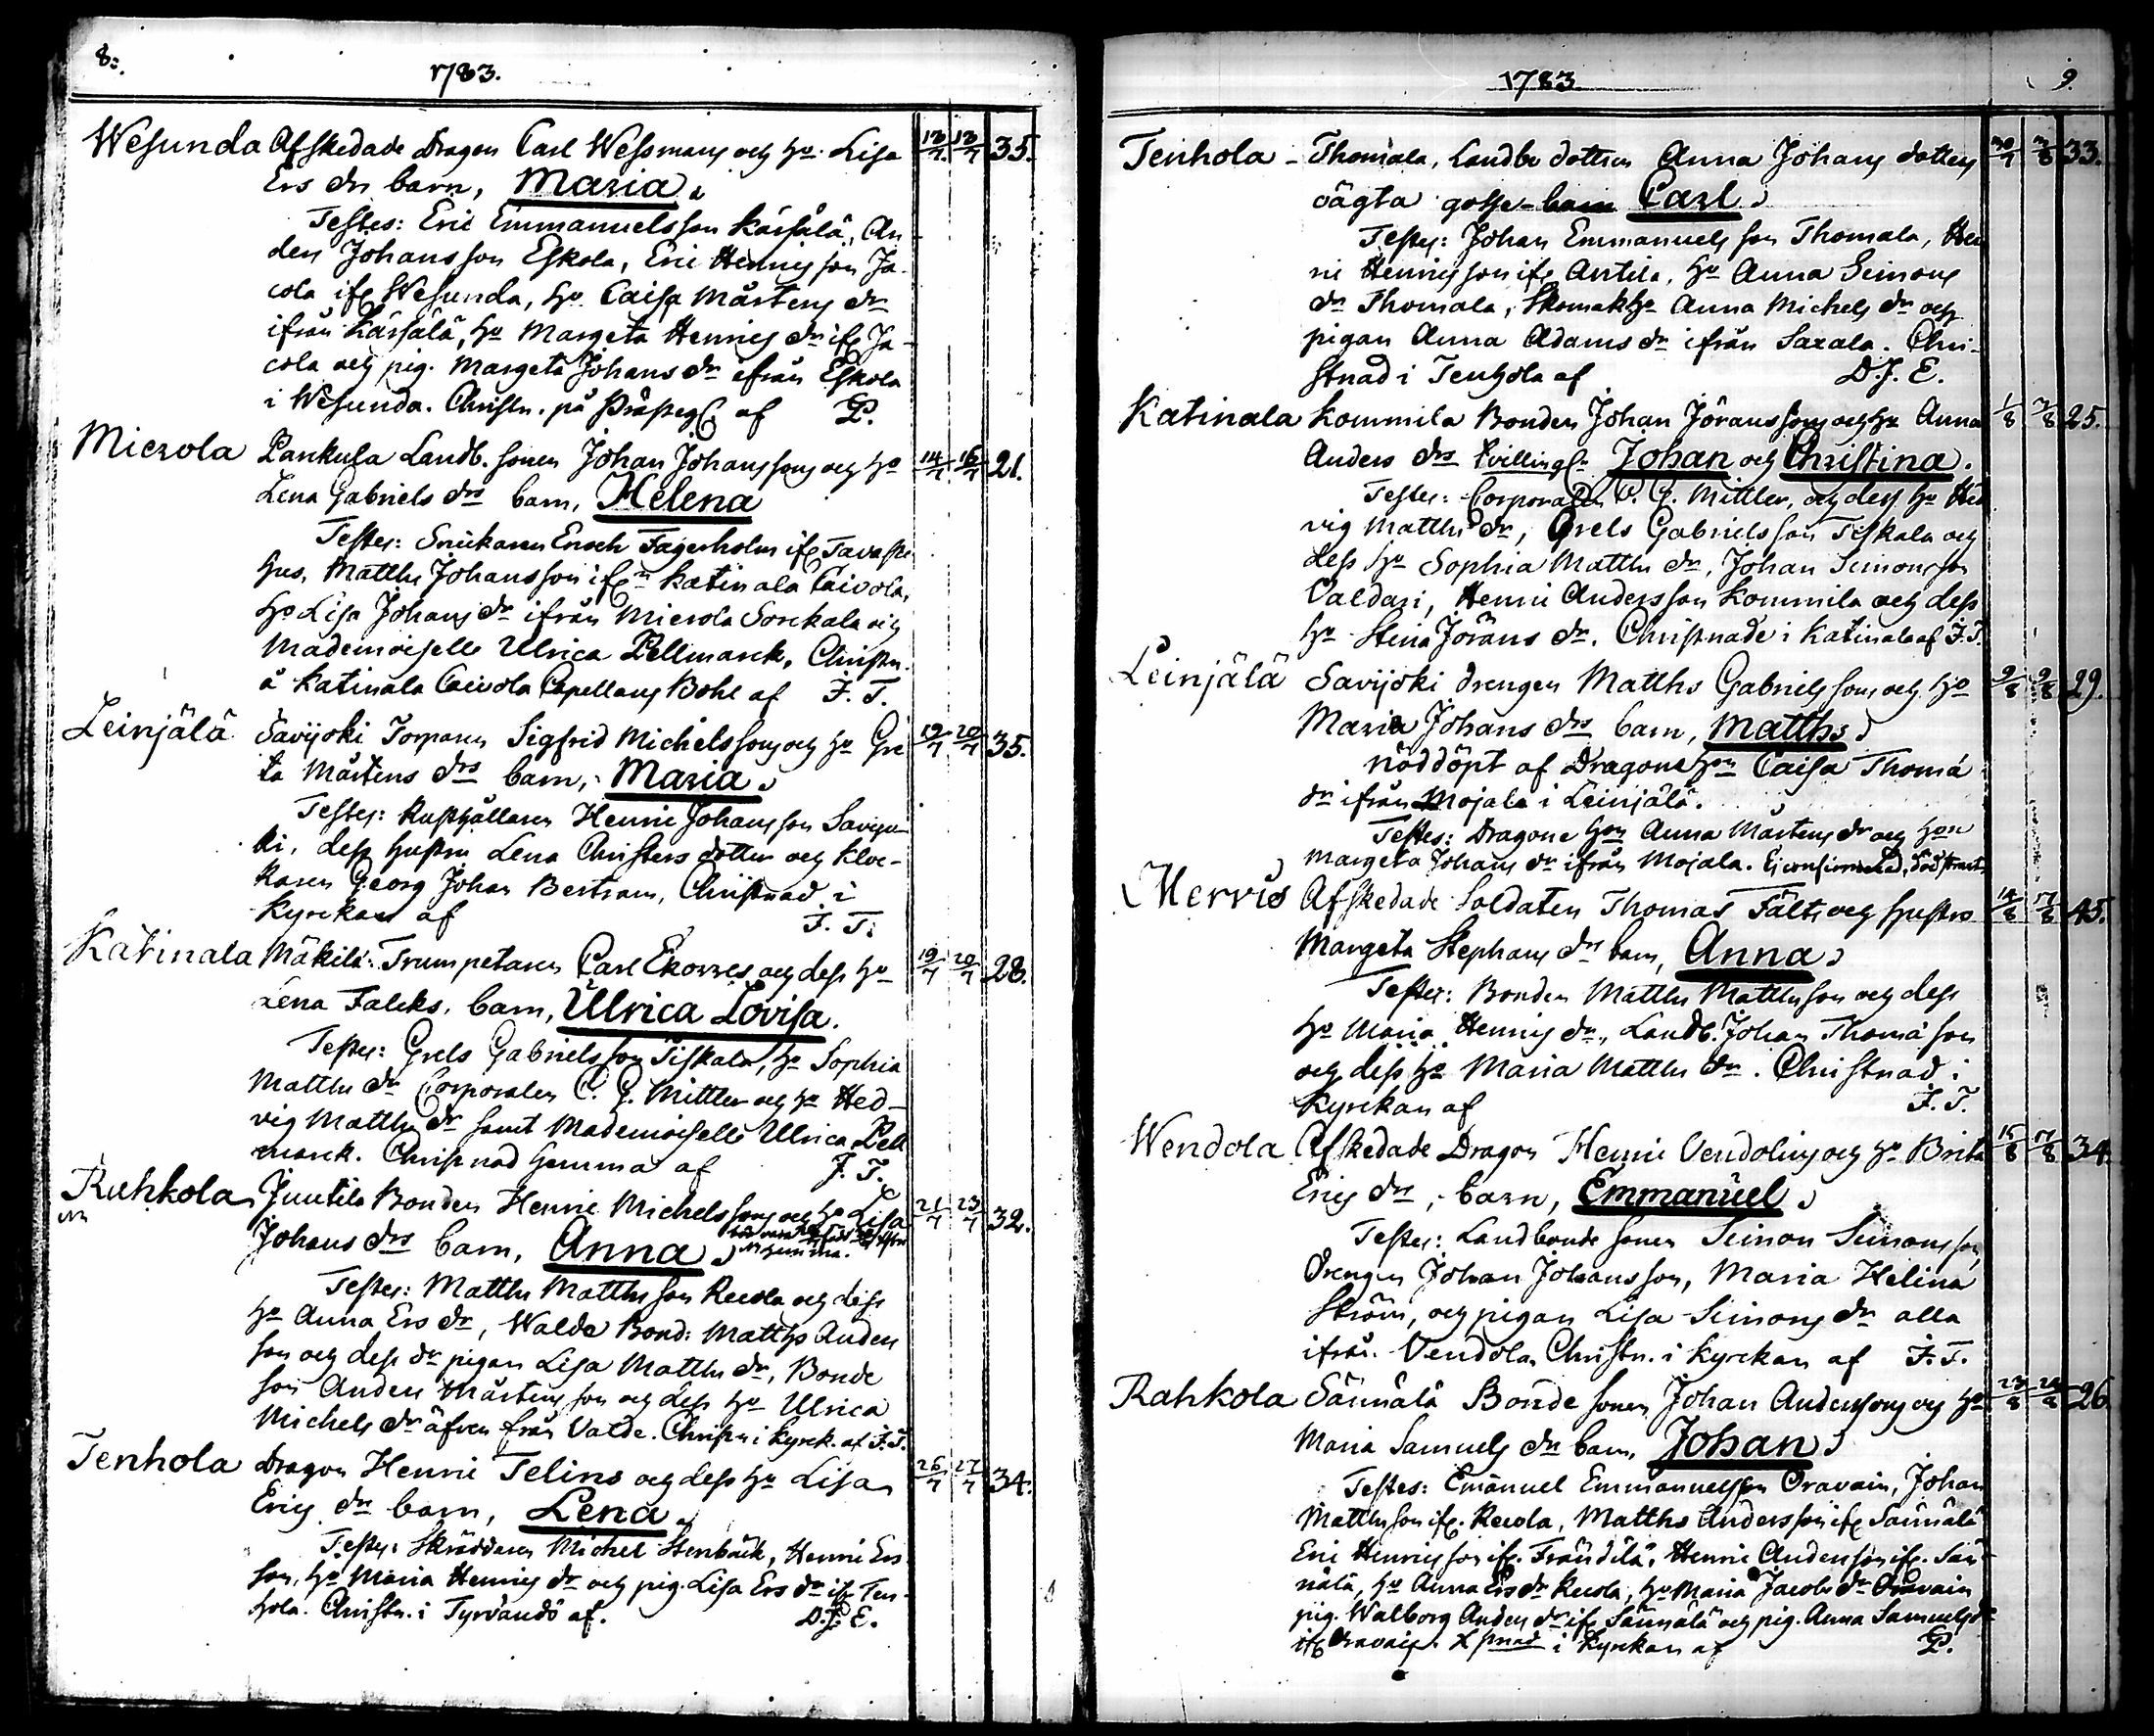 8:
1783.
Wesunda Afskedade Dragon Carl Wessmans och h:o Lisa 13/7 13/7 35.
Ers drs barn, Maria.
Testes: Eric Emmanuelsson Kärsälä, An
ders Johansson Eskola, Eric Henricsson Ja-
cola ifr Wesunda, h:o Caisa Mårtens dr
ifrån Kärsälä, h:o Margeta Henrics dr ifr Ja-
cola och pig. Margeta Johans dr ifrån Eskola
i Wesunda. Christn. på Prästeg. af P.
Mierola Pankula Landb. sonen Johan Johanssons och h:o 14/7 16/7 21.
Lena Gabriels drs barn, Helena
Testes: Snickaren Enoch Fagerholm ifr Tavaste
hus, Matths Johansson ifrn Katinala Caivola,
h:o Lisa Johans dr ifrån Mierola Sorckala och
Mademoiselle Ulrica Pellmarck, Christn.
å Katinala Caivola Capellans Bohl af J. T.
Leinjälä Savijoki Torparen Sigfrid Michelssons och h:o Gre 19/7 20/7 35.
ta Mårtens drs barn, Maria.
Testes: Rusthållaren Henric Johansson Savijo-
ki, dess hustru Lena Christers dotter och Kloc-
karen Georg Johan Bertram, Christnad i
Kyrckan af J. T.
Katinala Mäkilä Trumpetaren Carl Ekorres och dess h:o 19/7 20/7 28.
Lena Falcks, barn, Ulrica Lovisa.
Testes: Grels Gabrielsson Tiskala, h:o Sophia
Matths dr Corporalen C. G. Mittler och h:o Hed-
vig Matths dr samt Mademoiselle Ulrica Pell
marck. Christnad hemma af J. T.
Rahkola Juutila Bonden Henric Michelssons och h:o Lisa 21/7 23/7 32.
Johans drs barn, Anna. hemma.
Testes: Matths Matthsson Recola och dess
h:o Anna Ers dr, Walda Bond: Matths Anders
son och dess dr pigan Lisa Matths dr, Bonde
son Anders Mårtensson och dess h:o Ulrica
Michels dr äfven från Valde. Christn i Kyrck. af J. T.
Tenhola Dragon Henric Telins och dess h:o Lisa 26/7 27/7 34.
Erics drs barn, Lena.
Testes: Skräddaren Michel Stenbäck, Henric Ers
son, h:o Maria Henrics dr och pig. Lisa Ers dr ifr Ten-
hola. Christn. i Tyrvändö af. D.J. E.
1783
9.
Tenhola - Thomala, Landbo dottren Anna Johans dotters 30/7 3/8 33.
oägta gosse-barn Carl.
Testes: Johan Emmanuelsson Thomala, Hen
ric Henricsson ifr Antila, h:o Anna Simons
dr Thomala, Skomak h:o Anna Michels dr och
pigan Anna Adams dr ifrån Saxala. Chri-
stnad i Tenhola af D.J. E.
Katinala Kommila Bonden Johan Jöranssons och h:o Anna 1/8 3/8 25.
Anders drs tvilling. Johan och Christina.
Testes: Corporalen C. G. Mittler, och dess h:o Hed
vig Matths dr, Grels Gabrielsson Tiskala och
dess h:o Sophia Matths dr, Johan Simonsson
Valdari, Henric Andersson Kommila och dess
h:o Stina Jörans dr. Christnade i Katinala af J. T.
Leinjälä Savijoki drengen Matths Gabrielssons och h:o 9/8 9/8 29.
Maria Johans drs barn, Matths.
nöddöpt af Dragons h:n Caisa Thomæ
dr ifrån Mojala i Leinjälä.
Testes: Dragone h:n Anna Mårtens dr och h:on
Margeta Johans dr ifrån Mojala. Ej confirmerad, död straxt
Mervis Afskedade Soldaten Thomas Fälts och hustro 14/8 17/8 45.
Margeta Stephans drs barn, Anna.
Testes: Bonden Matths Matthsson och dess
h:o Maria Henrics dr., Landb. Johan Thomæ son
och dess h:o Maria Matths dr. Christnad i
Kyrckan af J. T.
Wendola Afskedade Dragon Henric Vendolins och h:o Brita 15/8 17/8 34.
Erics drs, barn, Emmanuel.
Testes: Landbonde sonen Simon Simonsson,
Drengen Johan Johansson, Maria Helina
Ström, och pigan Lisa Simons dr alla
ifrån Vendola, Christn. i Kyrckan af J. T.
Rahkola Sännälä Bonde sonen Johan Anderssons och h:o 23/8 24/8 26
Maria Samuels drs barn, Johan.
Testes: Emanuel Emmanuelsson Oravain, Johan
Matthsson ifr. Recola, Matths Andersson ifr Sännälä
Eric Henricsson ifr. Frändilä, Henric Andersson ifr. Sän-
nälä, h:o Anna Ers dr Recola, h:o Maria Jacobs dr Oravain
pig. Walborg Anders dr ifr Sännälä och pig. Anna Samuels dr
ifr Oravain. Xstnad i Kyrckan af P.